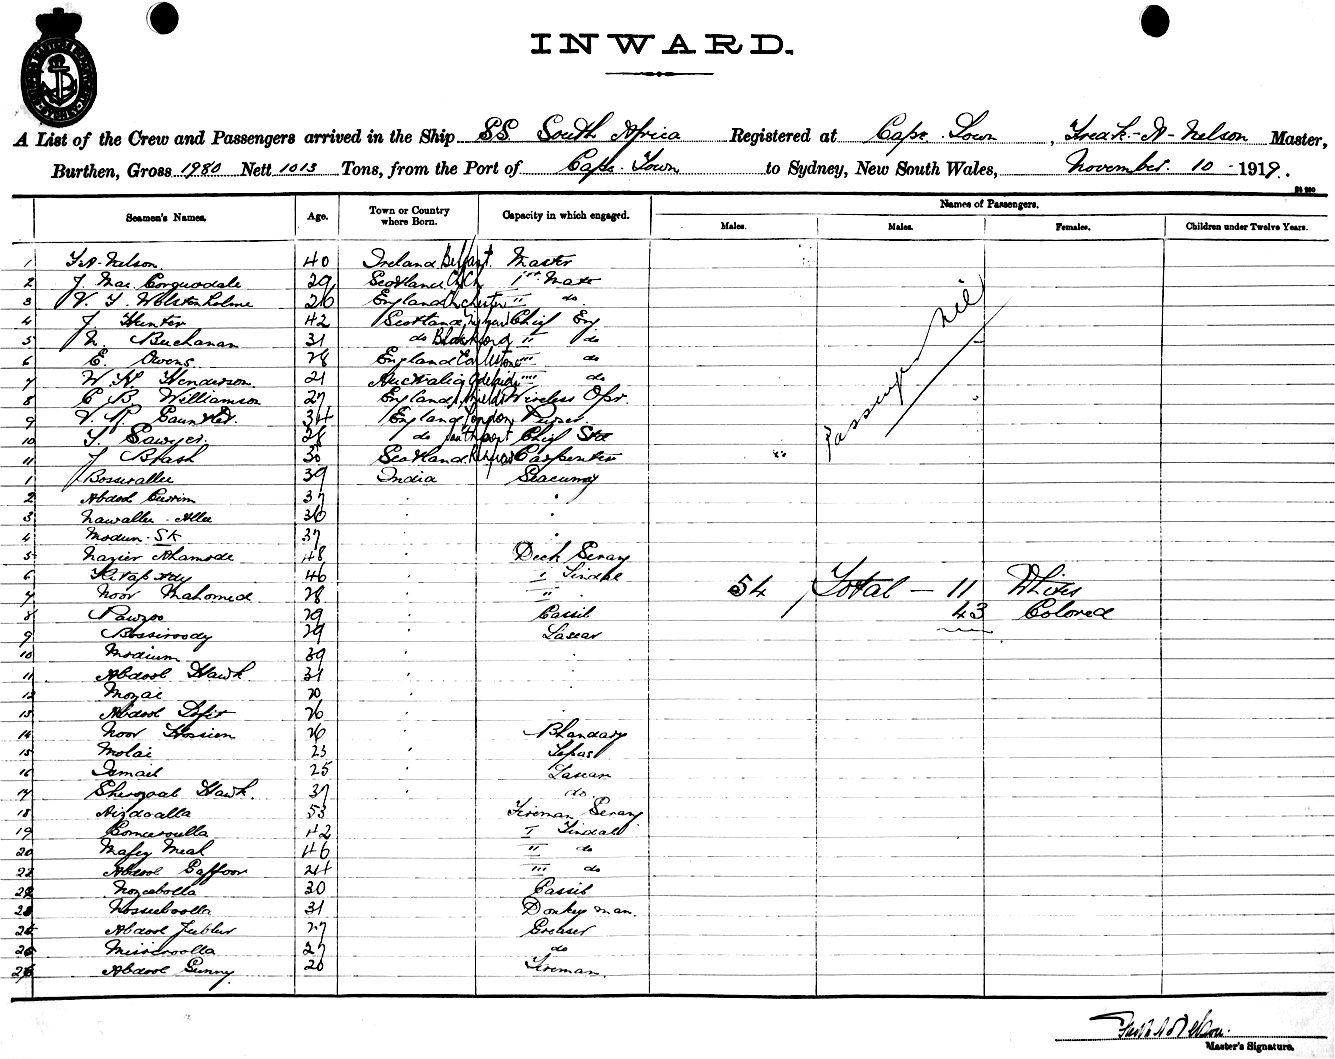 INWARD.
A List of the Crew and Passengers arrived in the Ship SS South Africa Registered at Cape Town, Freak-A-Nelson Master,
Burthen, Gross 1980 Nett 1013 Tons, from the Port of Cape Town to Sydney, New South Wales, November 10 - 1919.
Seamen's Names. Age. Town or Country where Born. Capacity in which engaged. Names of Passengers.
Males. Males. Females. Children under Twelve Years.
1 F A Nelson 40 Ireland Belfast Master
2 J. Mac Corquodale 29 Scotland 1st Mate
3 V. T. Wolstenholme 26 England " do
4 J. Hunter 42 Scotland Chief Eng
5 N. Buchanan 31 do Blackford " do
6 E. Owens 28 England "' do
7 W. H. Henderson 21 Australia Adelaide "" do
8 C B. Williamson 27 England Wireless Opr.
9 V. P. Gauntlet. 34 England London Purser
10 T. Sawyer. 28 do Southport Chief Std
11 J Brash 30 Scotland Carpenter
1 Bossirallee 39 India Seacunny
2 Abdool Currim 37 "
3 Nawallee Allee 36 "
4 Modun. SK 37 "
5 Nazier Ahamode 48 Deck Serang
6 46 I Tindal
7 Noor Mahomed 28 II "
Passengers Nil
54 Total - 11 Whites
43 Colored
8 29 Cassib
9 Bossiroody 29 Lascar
10 Modium 39 "
11 Abdool Hawk 31 "
12 Mozai 20 "
13 Abdool Lofit 26 "
14 Noor Hossien 26 Bhandary
15 Molai 23 Topas
16 Ismail 25 Lascar
17 Hawk. 37 do
18 53 Fireman Serang
19 42 I Tindal
20 Mafiz Meah 46 II do
21 Abdool Gaffoor 24 III do
22 30 Cassib
23 31 Donkeyman.
24 Abdool Jubbur 27 Greaser
25 27 do
26 Abdool Gunny 20 Fireman.
Master's Signature.